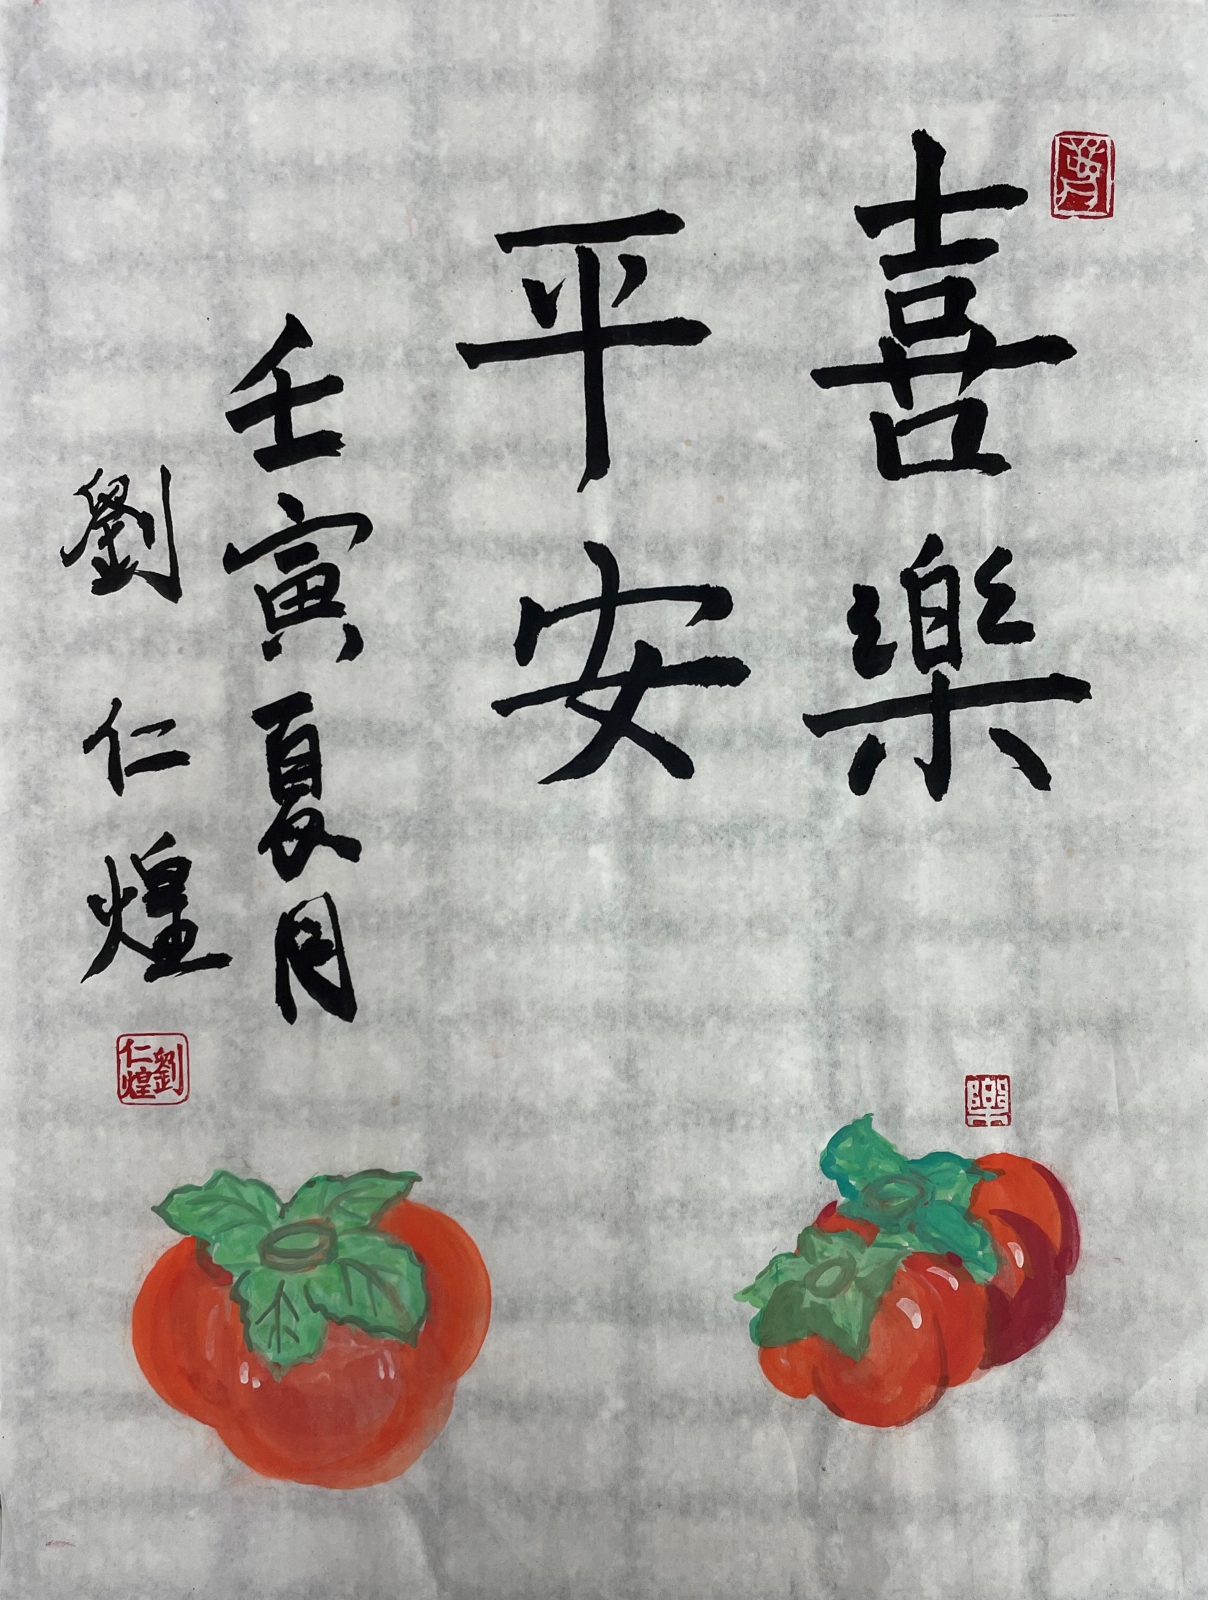 喜樂
平安
壬寅夏月
劉仁煌
劉仁煌
樂